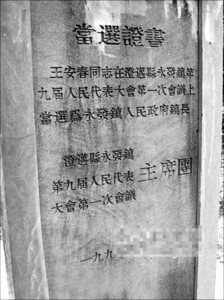 當選證書
王安春同志在澄邁縣永發鎮第
九届人民代表大會第一次會議上
當選爲永發鎮人民政府鎮長
澄邁縣永發鎮
第九届人民代表
大會第一次會議
主席團
一九九